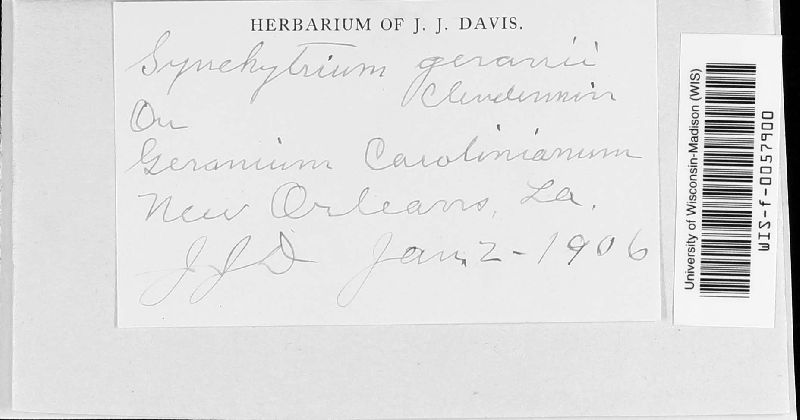 HERBARIUM OF J. J. DAVIS.
Synchytrium geranii
Clendennin
On
Geranium Carolinianum
New Orleans, La.
JJD Jan. 2-1906
University of Wisconsin-Madison (WIS)
WIS-f-0057900